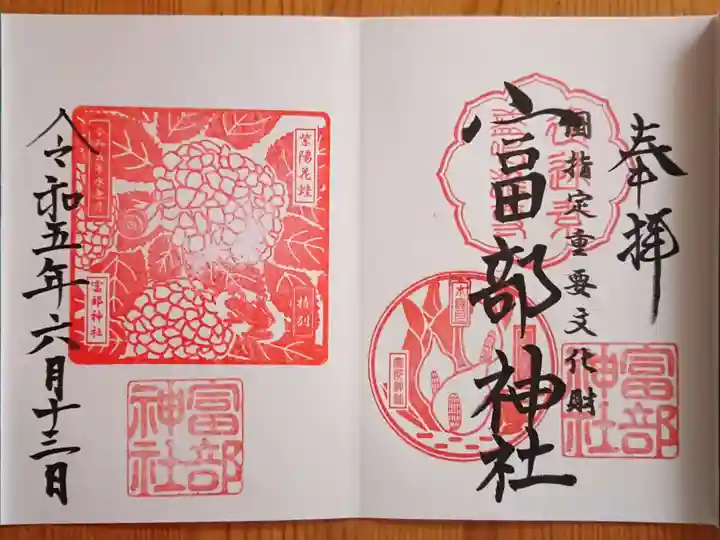 奉拝
国指定重要文化財
富部神社
富部神社
紫陽花蛙
特別
富部神社
富部神社
令和五年六月十三日